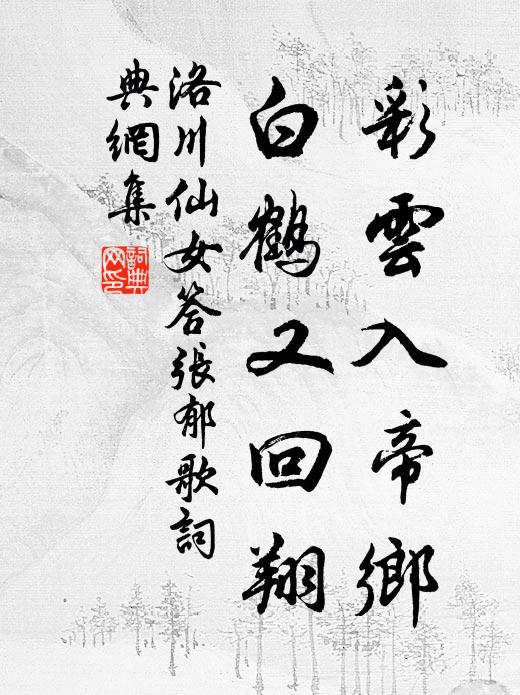 彩雲入帝鄉
白鶴又回翔
洛川仙女答張郁歌詞
典網集
詞典
网印